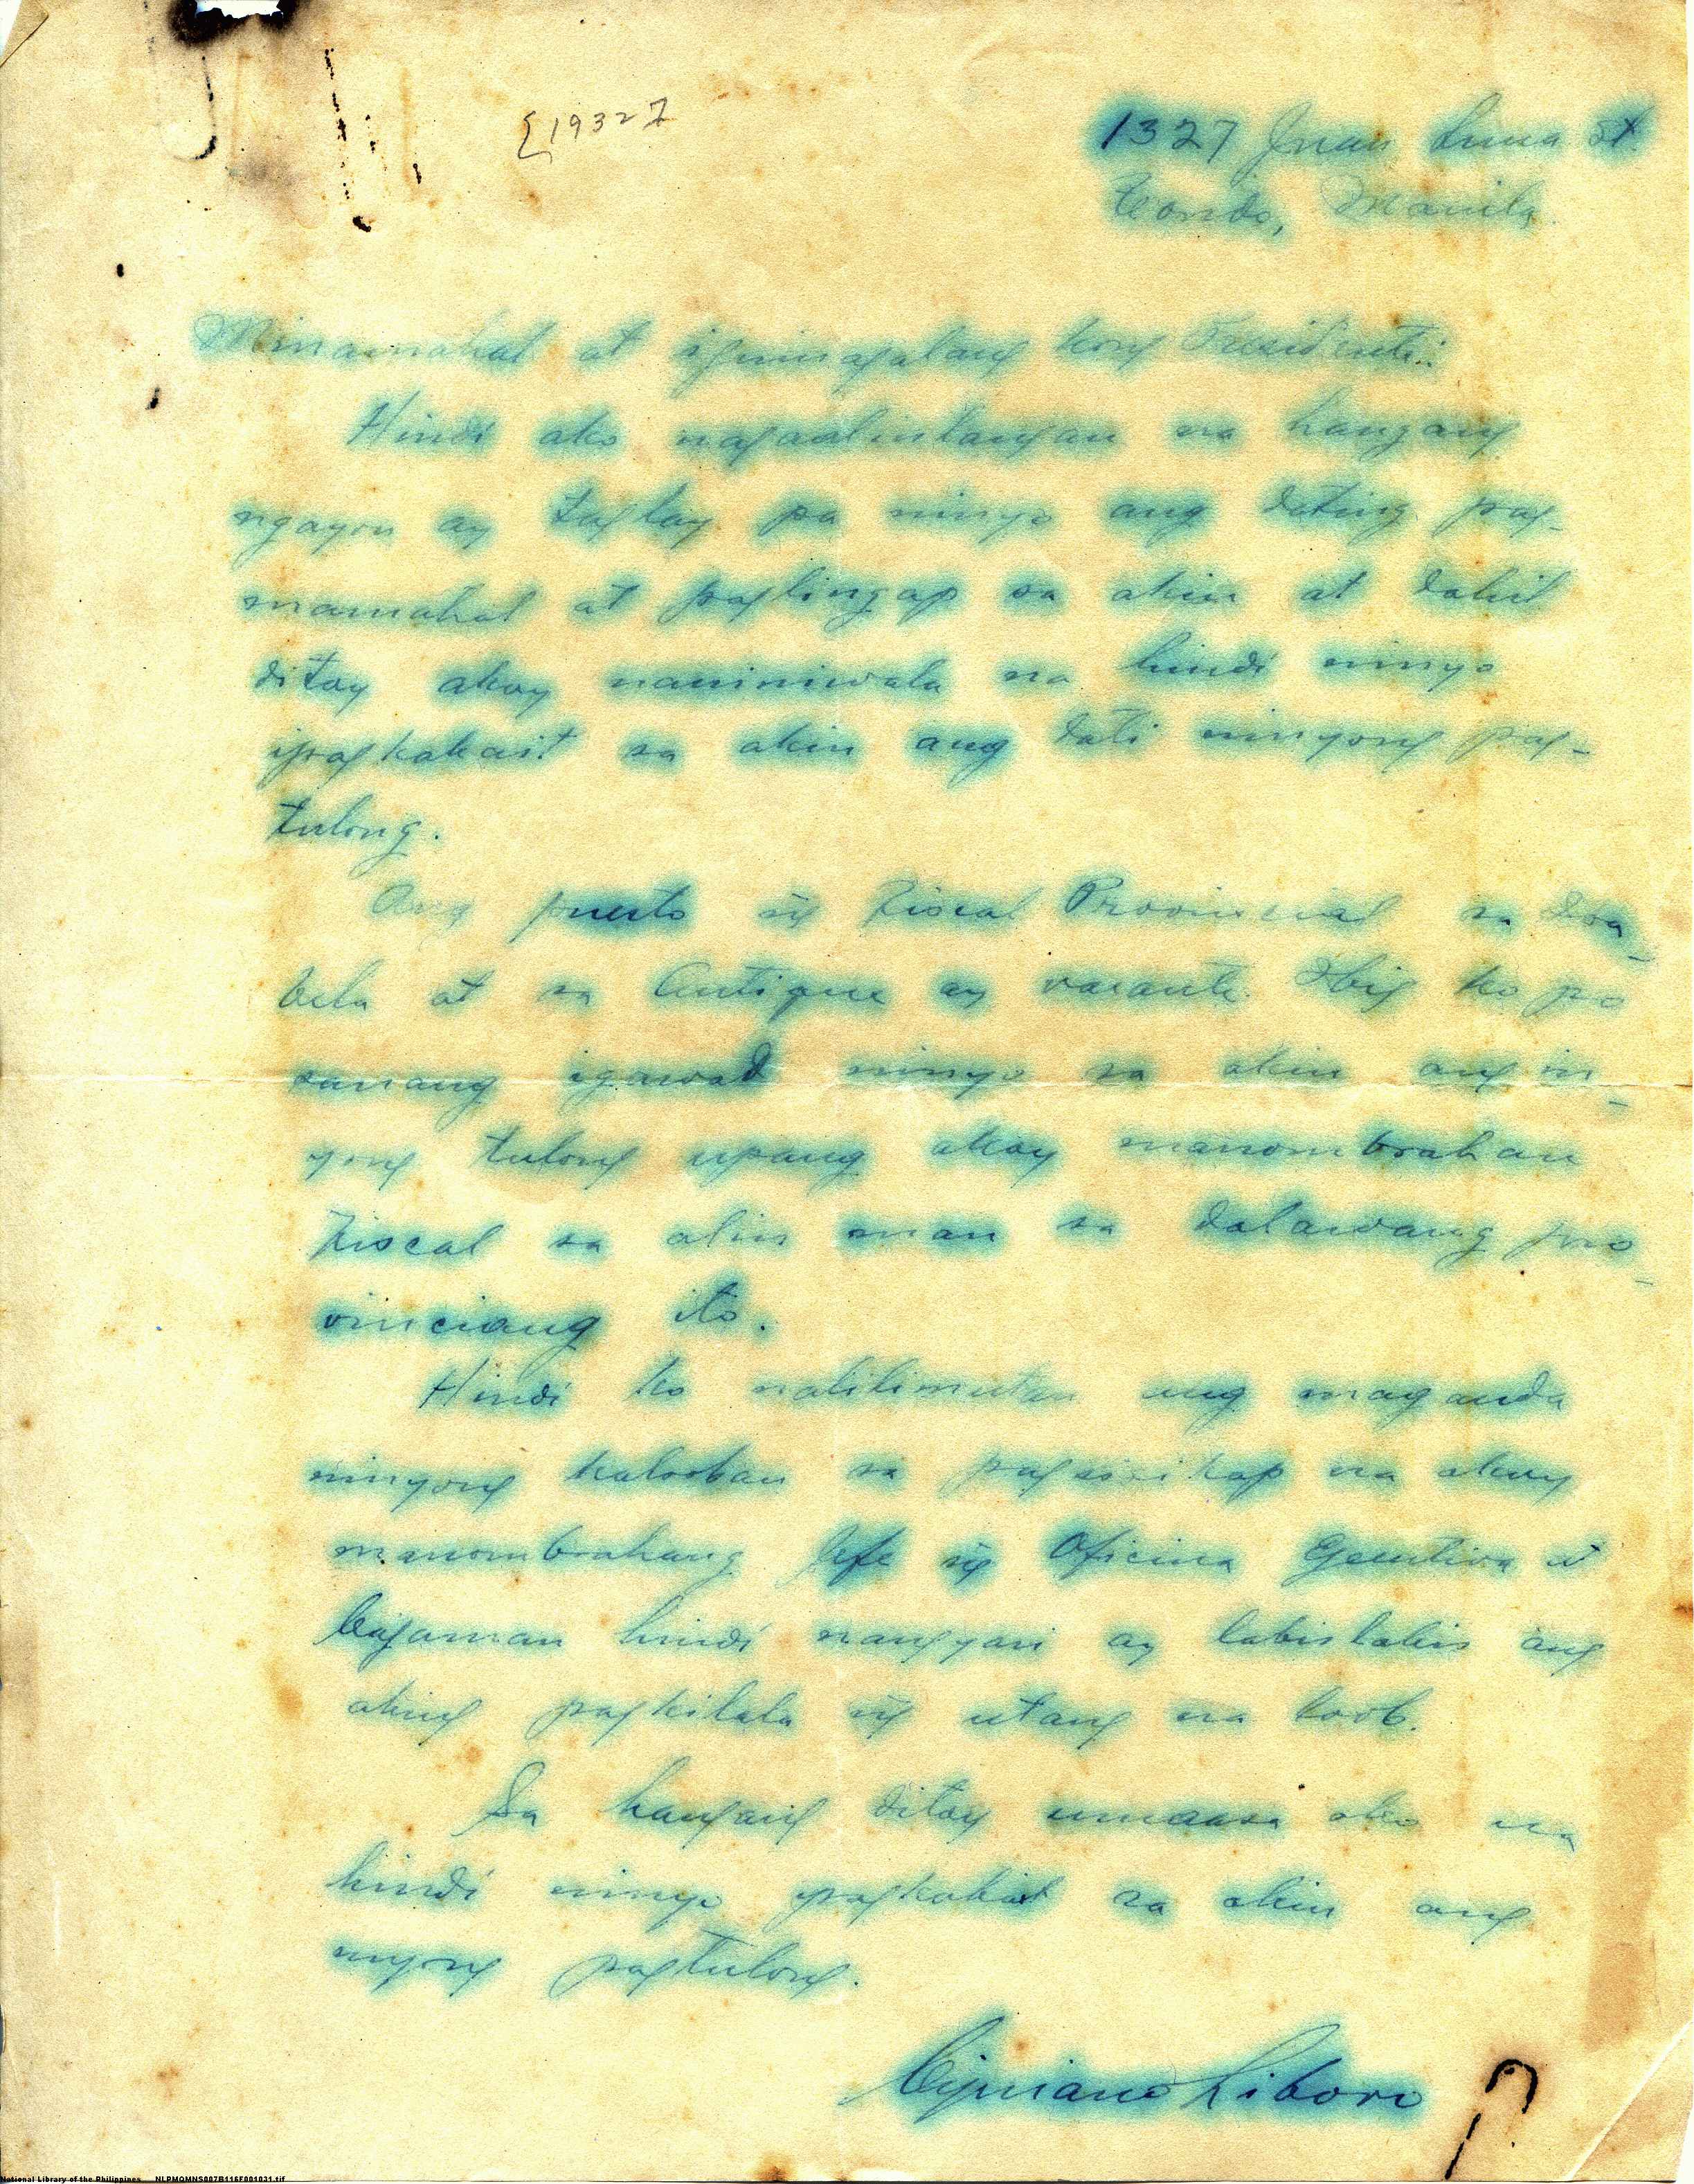 [1932]
1327 Juan Luna St.
Tondo, Manila
Minamahal at iguinagalang kong Presidente:
Hindi ako nagaalintangan na hangang
ngayon ay taglay pa ninyo ang dating pag-
mamahal at paglingap sa akin at dahil
ditoy akoy naniniwala na hindi ninyo
ipagkakait sa akin ang dati ninyong pag-
tulong.
Ang puesto ng Fiscal Provincial sa Isa-
bela at sa Antique ay vacante. Ibig ko po
sanang igawad ninyo sa akin ang in-
yong tulong upang akoy manombrahan
Fiscal sa alin man sa dalawang pro-
vinciang ito.
Hindi ko nalilimutan ang maganda
ninyong kalooban sa pagsisikap na akoy
manombrahang Jefe ng Oficina Ejecutiva at
bagaman hindi nangyari ay labis labis ang
aking pagkilala ng utang na loob.
Sa hangang ditoy umaasa ako na
hindi ninyo ipagkakait sa akin ang
inyong pagtulong.
Cipriano Liboro
National Library of the Philippines NLPMQMNS007B116F001031.tif